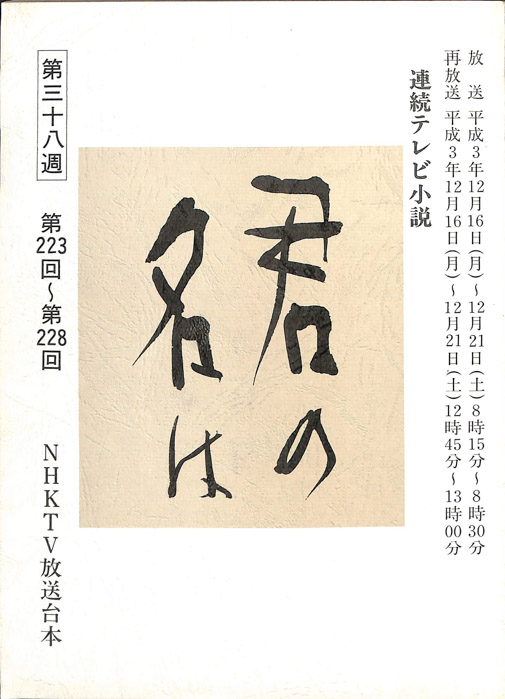 放送 平成3年12月16日(月)～12月21日(土)8時15分～8時30分
再放送 平成3年12月16日(月)～12月21日(土)12時45分～13時00分
連続テレビ小説
君の
名は
第三十八週
第223回～第228回
NHKTV放送台本